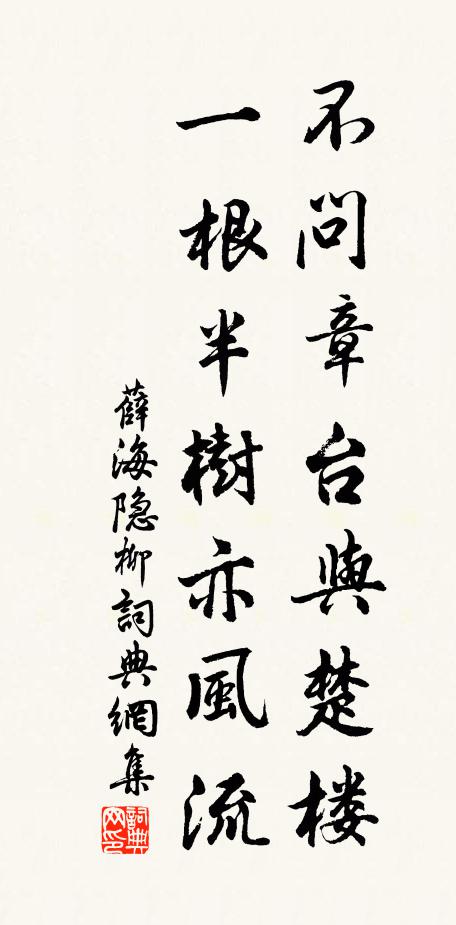 不問章台與楚楼
一根半樹亦風流
薛海隐柳詞典網集
詞典网印